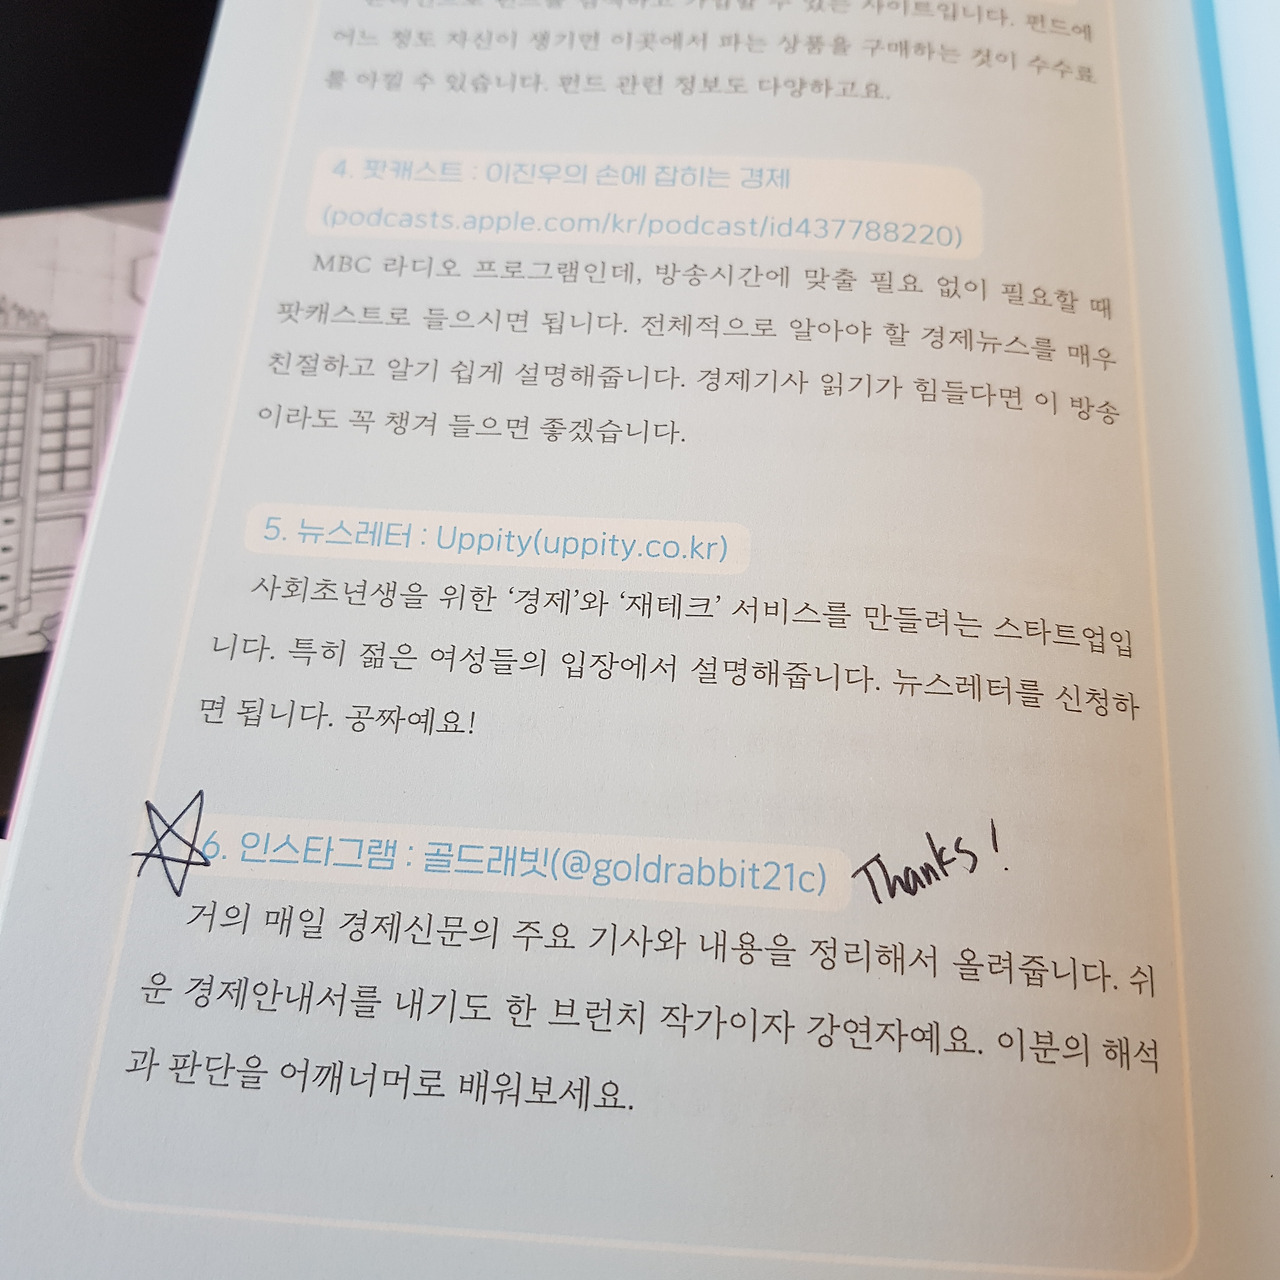 온라인으로 펀드를 검색하고 가입할 수 있는 사이트입니다. 펀드에
어느 정도 자신이 생기면 이곳에서 파는 상품을 구매하는 것이 수수료
를 아낄 수 있습니다. 펀드 관련 정보도 다양하고요.
4. 팟캐스트 : 이진우의 손에 잡히는 경제
(podcasts.apple.com/kr/podcast/id437788220)
MBC 라디오 프로그램인데, 방송시간에 맞출 필요 없이 필요할 때
팟캐스트로 들으시면 됩니다. 전체적으로 알아야 할 경제뉴스를 매우
친절하고 알기 쉽게 설명해줍니다. 경제기사 읽기가 힘들다면 이 방송
이라도 꼭 챙겨 들으면 좋겠습니다.
5. 뉴스레터 : Uppity(uppity.co.kr)
사회초년생을 위한 ‘경제’와 ‘재테크’ 서비스를 만들려는 스타트업입
니다. 특히 젊은 여성들의 입장에서 설명해줍니다. 뉴스레터를 신청하
면 됩니다. 공짜예요!
6. 인스타그램 : 골드래빗(@goldrabbit21c) Thanks!
거의 매일 경제신문의 주요 기사와 내용을 정리해서 올려줍니다. 쉬
운 경제안내서를 내기도 한 브런치 작가이자 강연자예요. 이분의 해석
과 판단을 어깨너머로 배워보세요.